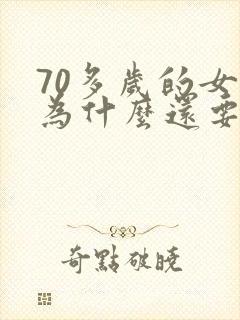 70多歲的女
為什麼還要
奇點破曉